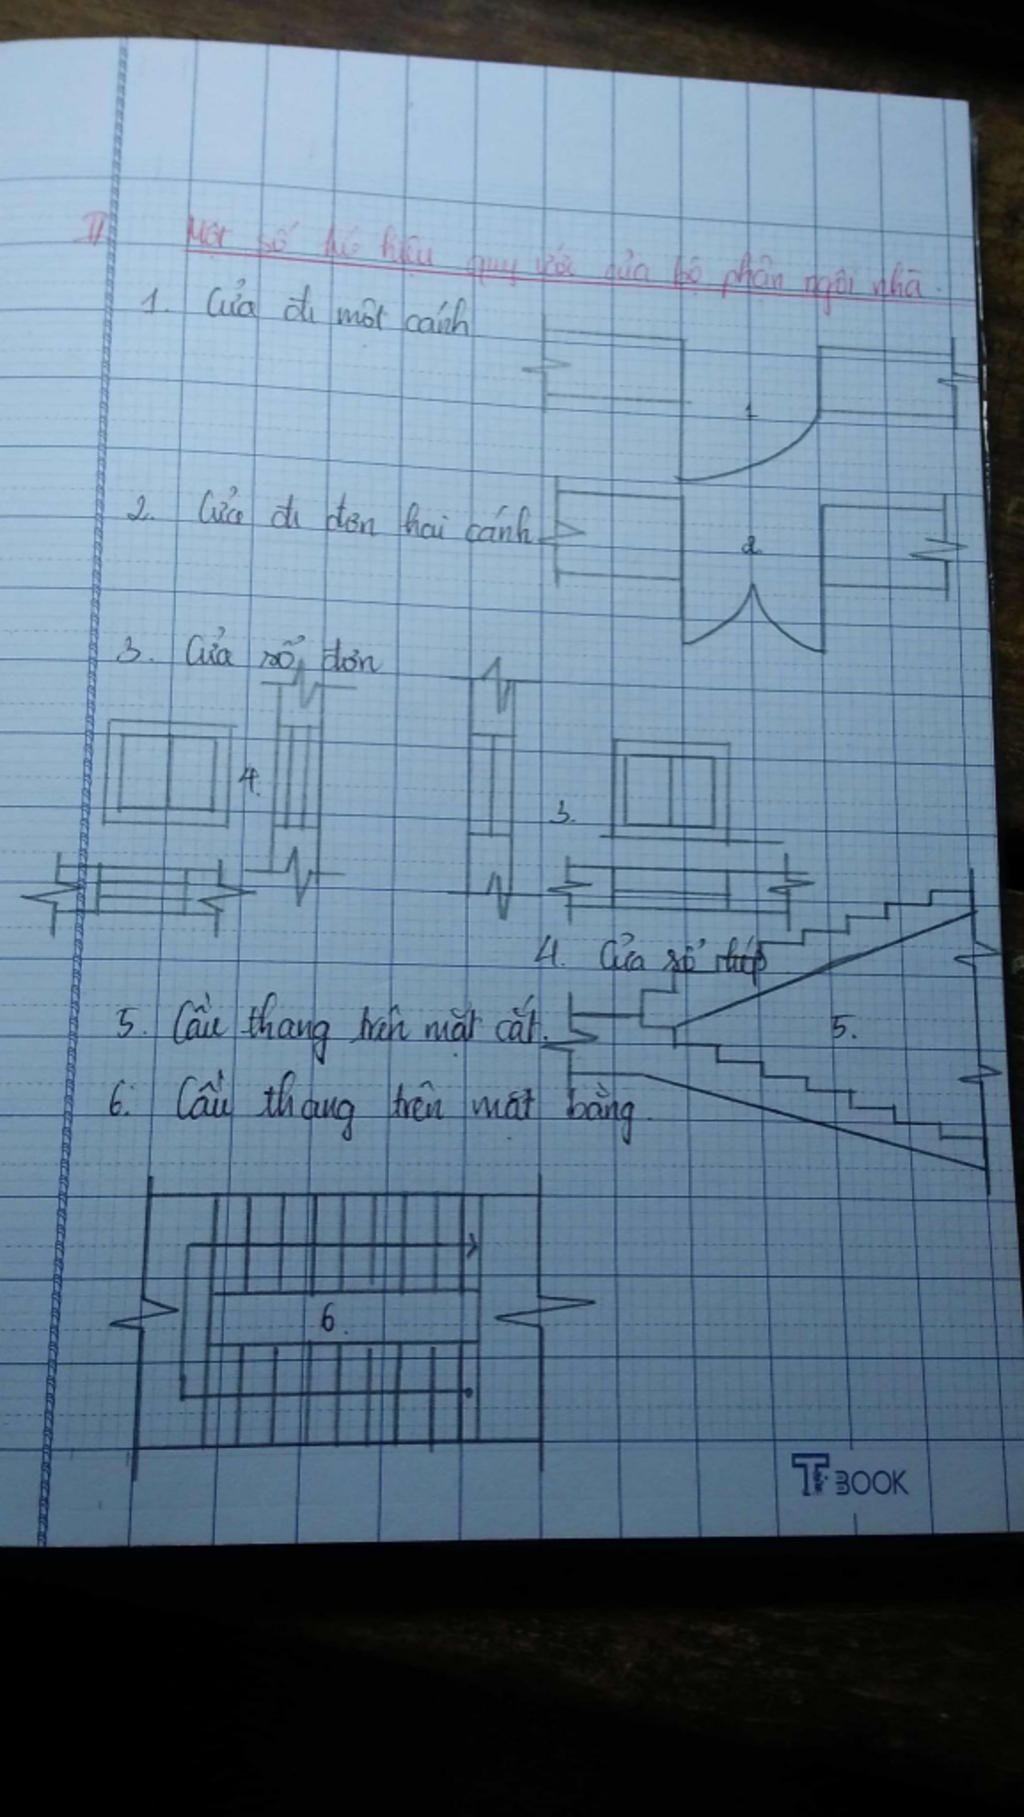 II Một số kí hiệu quy ước của bộ phận ngôi nhà.
1. Cửa đi một cánh
1
2. Cửa đi đơn hai cánh
2
3. Cửa sổ đơn
4.
3.
4. Cửa sổ kép
5. Cầu thang trên mặt cắt.
5.
6. Cầu thang trên mặt bằng.
6.
BOOK